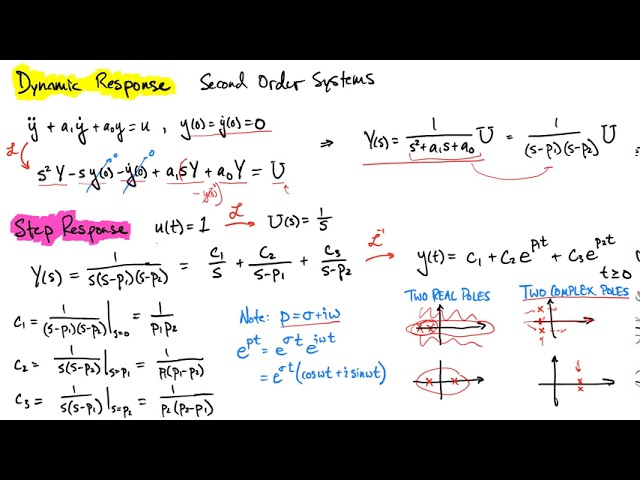 Dynamic Response Second Order Systems
ÿ + a₁ẏ + a₀y = u , y(0) = ẏ(0) = 0 ⇒ Y(s) = 1/(s² + a₁s + a₀) U = 1/((s-p₁)(s-p₂)) U
ℒ
s²Y - sy(0) - ẏ(0) + a₁sY + a₀Y = U
0 0
- y(0)
Step Response u(t) = 1 ℒ→ U(s) = 1/s
Y(s) = 1/(s(s-p₁)(s-p₂)) = C₁/s + C₂/(s-p₁) + C₃/(s-p₂) ℒ⁻¹→ y(t) = C₁ + C₂e^{p₁t} + C₃e^{p₂t}
t ≥ 0
C₁ = 1/((s-p₁)(s-p₂)) |s=0 = 1/(p₁p₂)
C₂ = 1/(s(s-p₂)) |s=p₁ = 1/(p₁(p₁-p₂))
C₃ = 1/(s(s-p₁)) |s=p₂ = 1/(p₂(p₂-p₁))
Note: p = σ + iω
e^{pt} = e^{σt} e^{iωt}
= e^{σt}(cosωt + i sinωt)
TWO REAL POLES TWO COMPLEX POLES